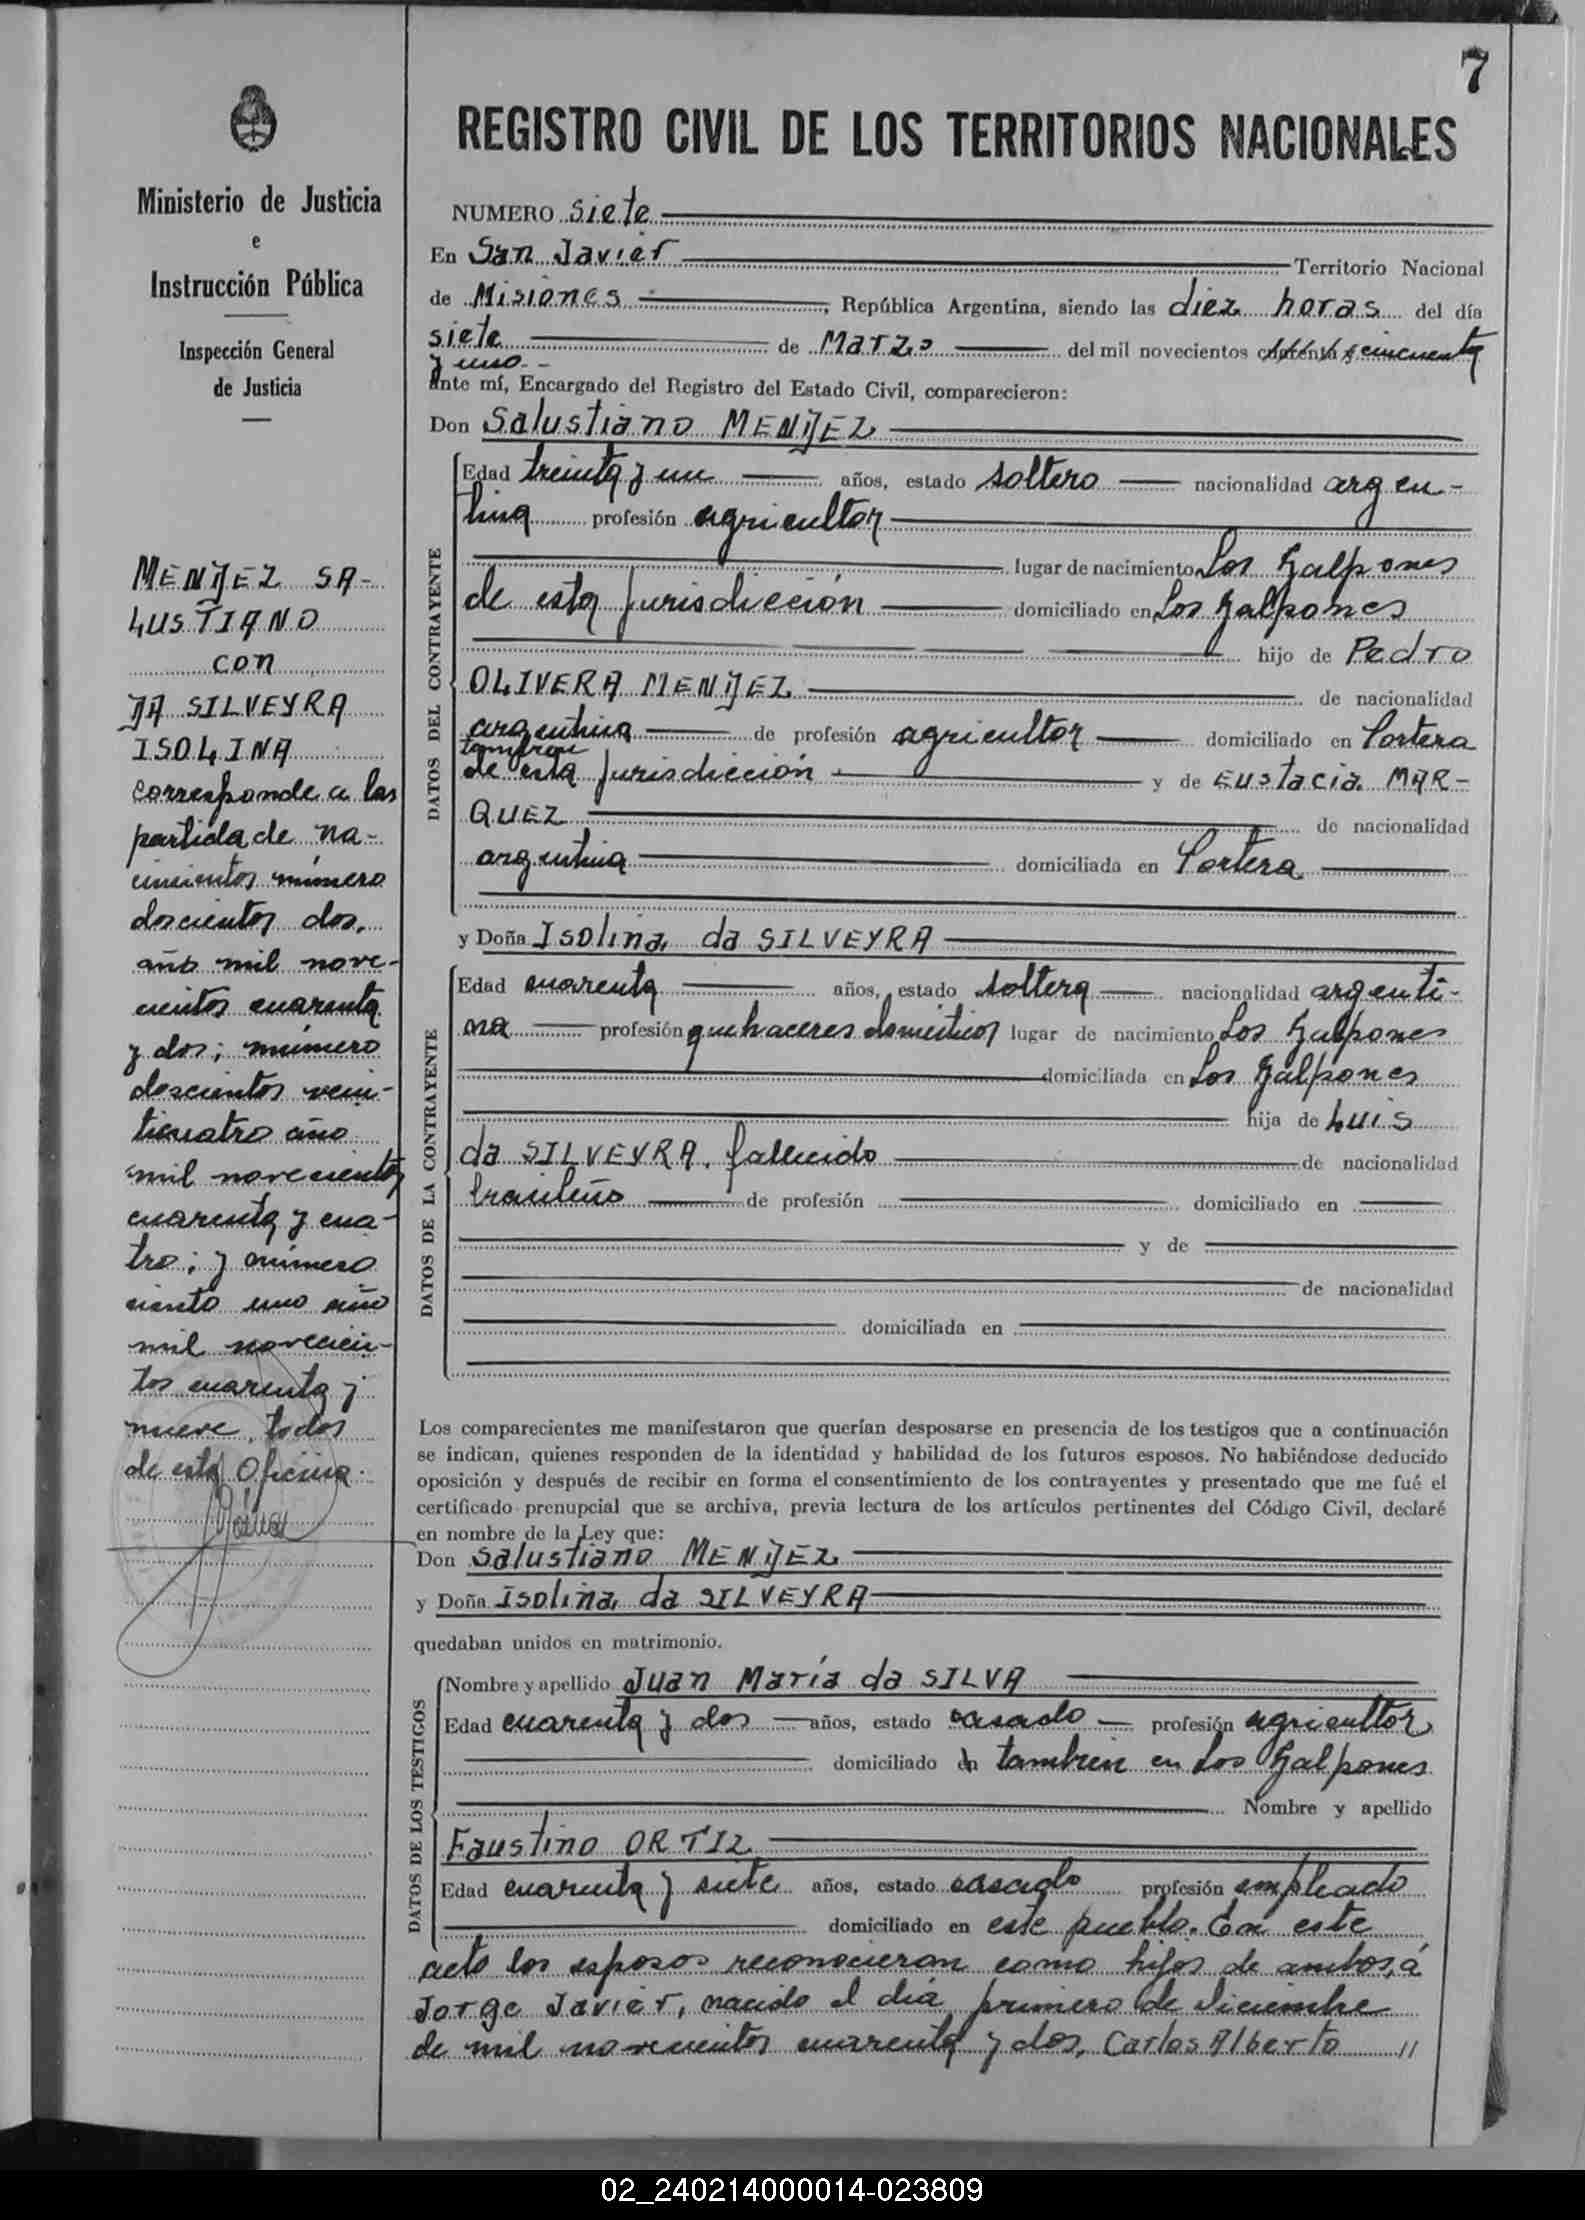 7
REGISTRO CIVIL DE LOS TERRITORIOS NACIONALES
Ministerio de Justicia
e
Instrucción Pública
Inspección General
de Justicia
MENDEZ SA-
LUSTIANO
con
DA SILVEYRA
ISOLINA
corresponde a las
partida de na-
cimientos número
doscientos dos,
año mil nove-
cientos cuarenta
y dos; número
doscientos vein-
ticuatro año
mil novecientos
cuarenta y cua-
tro; y número
ciento uno año
mil novecien-
tos cuarenta y
nueve, todos
de esta Oficina.
NUMERO siete
En San Javier Territorio Nacional
de Misiones, República Argentina, siendo las diez horas del día
siete de Marzo del mil novecientos cincuenta
y uno.--
Ante mí, Encargado del Registro del Estado Civil, comparecieron:
Don Salustiano MENDEZ
DATOS DEL CONTRAYENTE
Edad treinta y un años, estado soltero nacionalidad argen-
tina profesión agricultor
lugar de nacimiento Los Galpones
de esta jurisdicción domiciliado en Los Galpones
hijo de Pedro
OLIVERA MENDEZ de nacionalidad
argentina de profesión agricultor domiciliado en Portera
tambien
de esta jurisdicción y de Eustacia MAR-
QUEZ de nacionalidad
argentina domiciliada en Portera
y Doña Isolina da SILVEYRA
DATOS DE LA CONTRAYENTE
Edad cuarenta años, estado soltera nacionalidad argenti-
na profesión quehaceres domésticos lugar de nacimiento Los Galpones
domiciliada en Los Galpones
hija de Luis
da SILVEYRA, fallecido de nacionalidad
brasileño de profesión domiciliado en
y de
de nacionalidad
domiciliada en
Los comparecientes me manifestaron que querían desposarse en presencia de los testigos que a continuación
se indican, quienes responden de la identidad y habilidad de los futuros esposos. No habiéndose deducido
oposición y después de recibir en forma el consentimiento de los contrayentes y presentado que me fué el
certificado prenupcial que se archiva, previa lectura de los artículos pertinentes del Código Civil, declaré
en nombre de la Ley que:
Don Salustiano MENDEZ
y Doña Isolina da SILVEYRA
quedaban unidos en matrimonio.
DATOS DE LOS TESTIGOS
Nombre y apellido Juan María da SILVA
Edad cuarenta y dos años, estado casado profesión agricultor
domiciliado tambien en Los Galpones
Nombre y apellido
Faustino ORTIZ
Edad cuarenta y siete años, estado casado profesión empleado
domiciliado en este pueblo. En este
acto los esposos reconocieron como hijos de ambos, á
Jorge Javier, nacido el día primero de diciembre
de mil novecientos cuarenta y dos, Carlos Alberto //
02_240214000014-023809